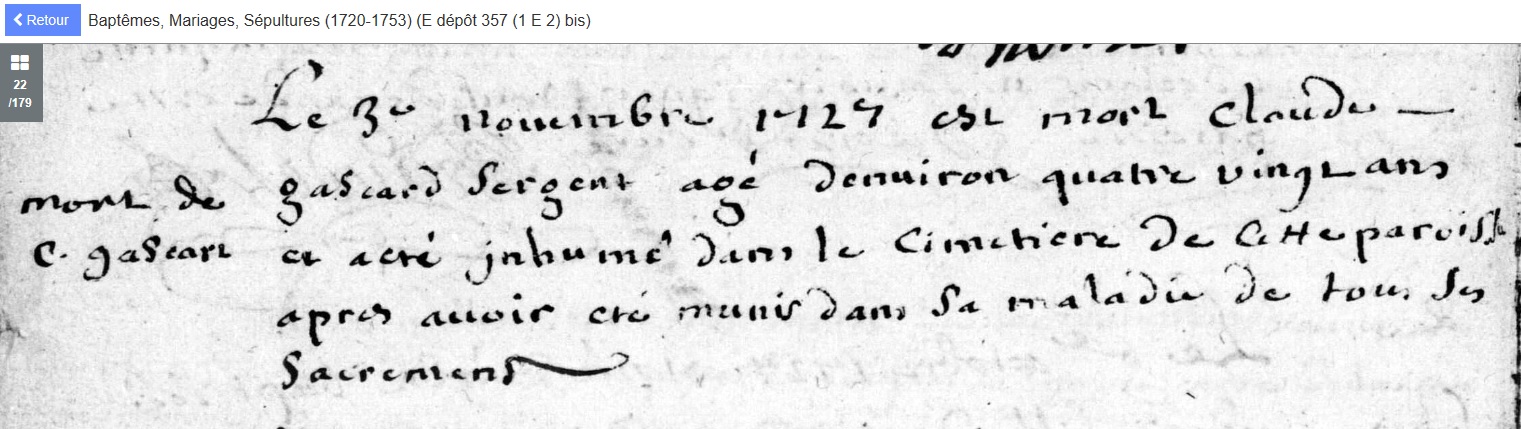 Retour Baptêmes, Mariages, Sépultures (1720-1753) (E dépôt 357 (1 E 2) bis)
22
/179
Le 3e nouembre 1727 est mort Claude
mort de
C. gascart
gascard sergent agé denuiron quatre vingt ans
et aeté jnhumé dans le Cimetiere de Cette paroisse
apres auoir eté munis dans sa maladie de tous ses
sacremens